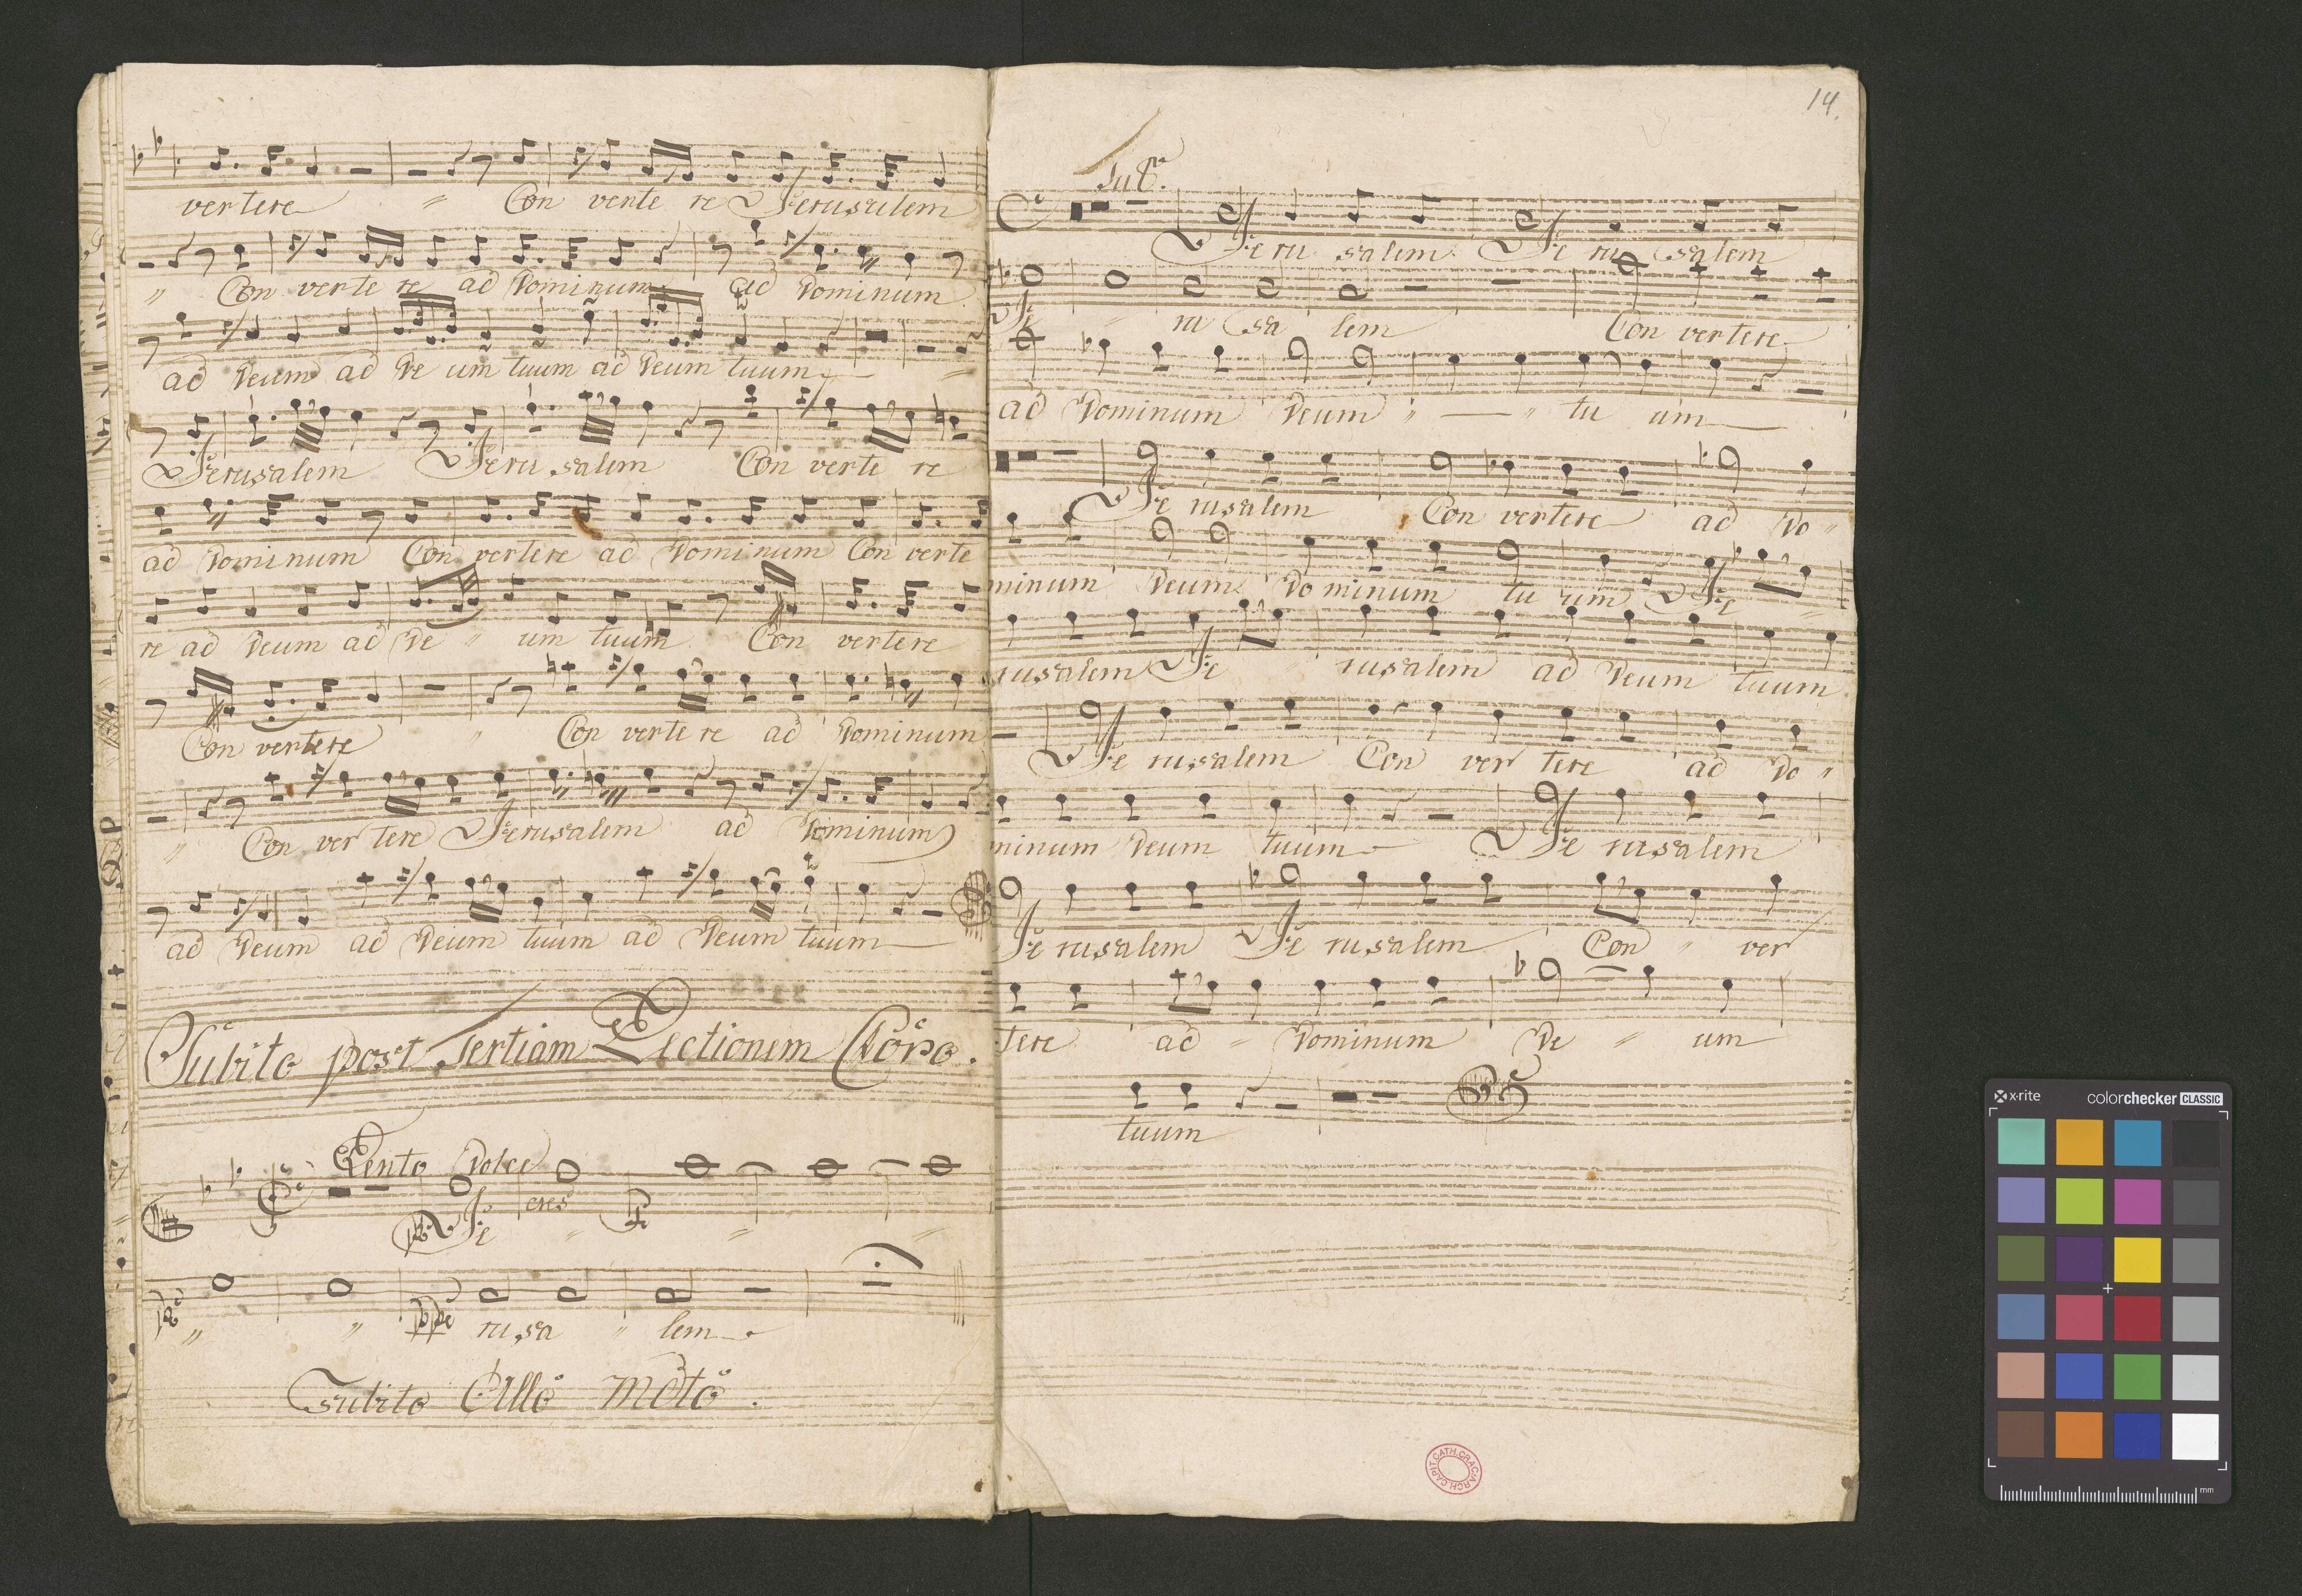 vertere " Con verte re Jerusalem
" Con verte re ad Dominum ad Dominum
ad Deum ad De um tuum ad Deum tuum "
Jerusalem Jeru salem Con verte re
ad Dominum Con vertere ad Dominum Con verte
re ad Deum ad De " um tuum Con vertere
Con vertere " Con verte re ad Dominum
" Con ver tere Jerusalem ad Dominum
ad Deum ad Deum tuum ad Deum tuum
Subito post Tertiam Lectionem Coro.
Lento Dolce
Je " cres " "
" " rusa " lem
Subito Allo Moto.
14.
Je ru salem Je ru salem
Je " ru sa lem Con vertere
ad Dominum Deum " " tu um
Je rusalem Con vertere ad Do "
minum Deum Do minum tu um Je "
rusalem Je " rusalem ad Deum tuum
Je rusalem Con ver tere ad Do "
minum Deum tuum Je rusalem
Je rusalem Je rusalem Con " ver
tere ad " Dominum De " um
tuum
ARCH.CAPIT.CATH.CRAC.
x-rite colorchecker CLASSIC
mm